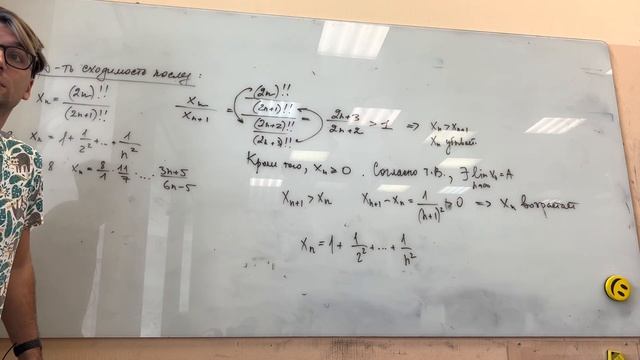 -ть сходимость послед:
x_n = (2n)!! / (2n+1)!!
x_n = 1 + 1/2² + ... + 1/n²
8 x_n = 8/1 · 11/7 · ... · (3n+5)/(6n-5)
x_n / x_{n+1} = ((2n)!! / (2n+1)!!) / ((2n+2)!! / (2n+3)!!) = (2n+3)/(2n+2) > 1 ⇒ x_n > x_{n+1}
x_n убывает
Кроме того, x_n ≥ 0. Согласно т.В., ∃ lim x_n = A
n→∞
x_{n+1} > x_n x_{n+1} - x_n = 1/(n+1)² > 0 ⇒ x_n возрастает
x_n = 1 + 1/2² + ... + 1/n²